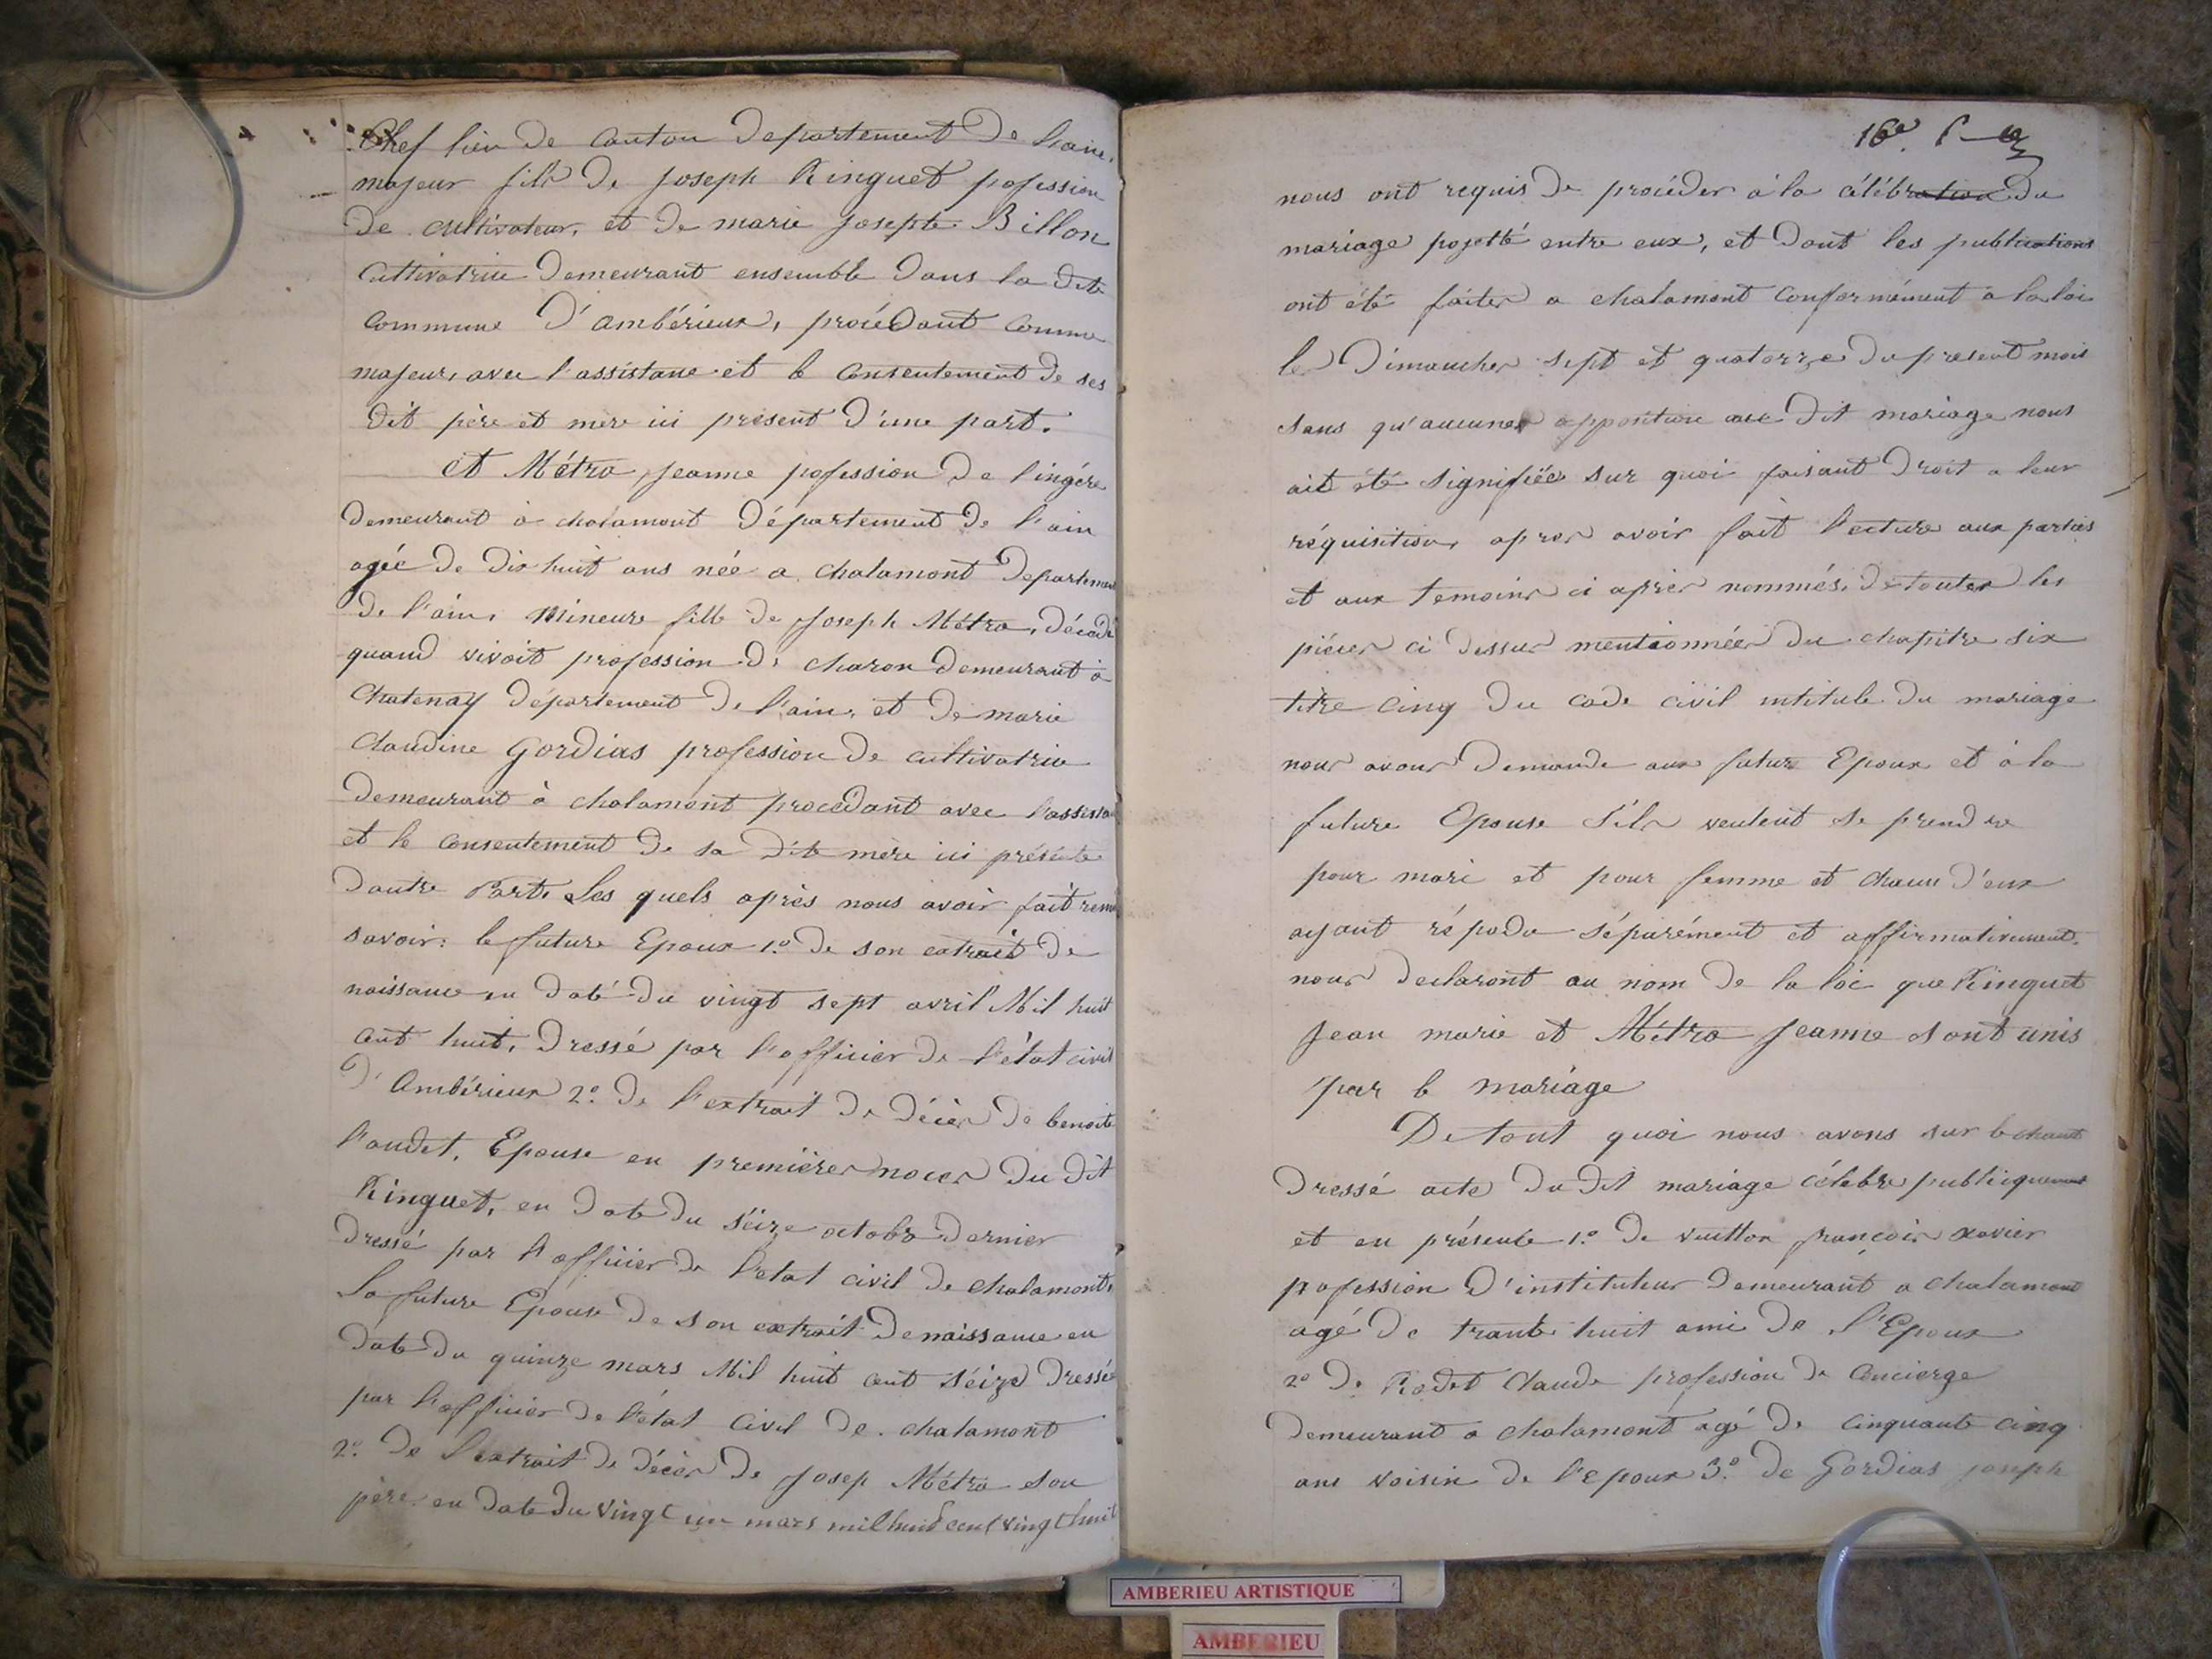 Chef lieu de canton departement de l'ain,
majeur fils de Joseph Ringuet pofession
de cultivateur, et de marie Josepte Billon
cultivatrice demeurant ensemble dans la dite
commune d'ambérieux, procédant comme
majeur, avec l'assistance et le consentement de ses
dit père et mère ici présent d'une part.
et Métra Jeanne pofession de lingére
demeurant à chalamont département de l'ain
agée de dix huit ans née a chalamont departement
de l'ain, Mineure fille de Joseph Métra, décédé
quand vivoit profession de charon demeurant à
Chatenay département de l'ain, et de marie
Claudine Gordias profession de cultivatrice
demeurant à chalamont procédant avec l'assista
et le consentement de sa dite mère ici présente
d'autre Part. Les quels après nous avoir fait remi
savoir: le future Epoux 1.º de son extrait de
naissance en daté du vingt sept avril Mil huit
cent huit, dressé par l'officier de l'état civil
d'Ambérieux 2.º de l'extrait de décès de benoite
l'audet, Epouse en premières noces du dit
Ringuet, en date du séize octobre dernier
dressé par l'officier de l'etat civil de chalamont,
La future Epouse de son extrait de naissance en
date du quinze mars Mil huit cent séize dressé
par l'officier de l'état civil de chalamont
2.º de l'extrait de décès de Josep Métra son
père en date du vingt un mars mil huit cent vingt huit
16e.
nous ont requis de procéder à la célébration du
mariage pojetté entre eux, et dont les publications
ont été faites a chalamont conformément à la loi
les dimanches sept et quatorze du present mois
sans qu'aucunes opposition au dit mariage nous
ait été signifiée sur quoi faisant droit a leur
réquisition, apres avoir fait lecture aux parties
et aux temoins ci après nommés, de toutes les
piéces ci dessus mentionnées du chapitre six
titre cinq du code civil intitule du mariage
nous avons demande aux future Epoux et à la
future Epouse s'ils veulent se prendre
pour mari et pour femme et chacun d'eux
ayant répodu séparément et affirmativement.
nous declaront au nom de la loi que Ringuet
Jean marie et Métra Jeanne sont unis
par le mariage
De tout quoi nous avons sur le chant
dressé acte du dit mariage célébre publiquement
et en présente 1.º de vuitton françois xavier
pofession d'instituteur demeurant a chalamont
agé de trante huit ami de l'Epoux
2º de Rodet Claude profession de concierge
demeurant a chalamont agé de cinquante cinq
ans voisin de l'epoux 3.º de Gordias joseph
AMBERIEU ARTISTIQUE
AMBERIEU